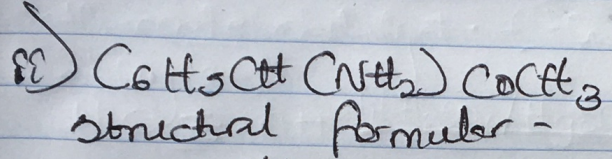 ii) C6H5CH (NH2) COCH3
structural formular -